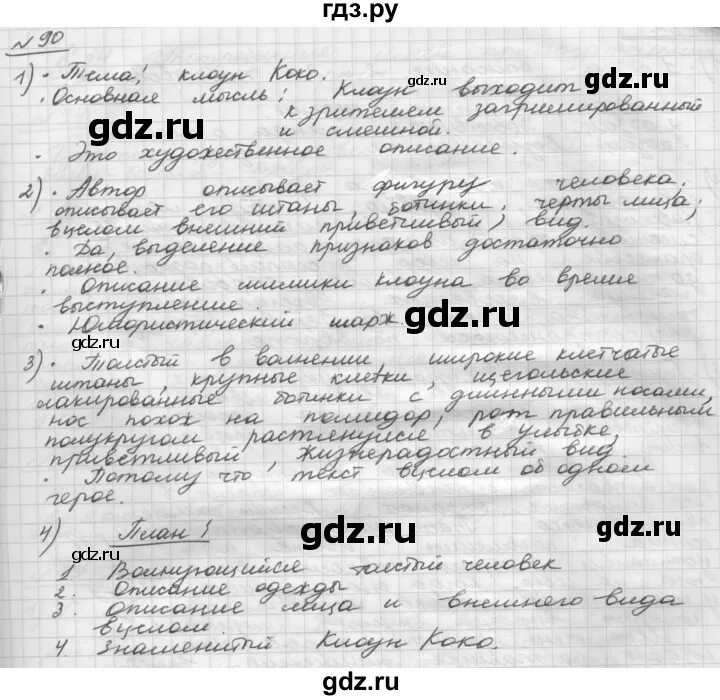 гдз.ру
№ 90
1) • Тема: клоун Коко.
• Основная мысль: Клоун выходит
к зрителям загримированный
и смешной.
gdz.ru
gdz.ru
• Это художественное описание.
2) • Автор описывает фигуру человека,
описывает его штаны, ботинки, черты лица,
вцелом внешний приветливый) вид.
gdz.ru
• Да, выделение признаков достаточно
полное.
• Описание мимики клоуна во время
выступление.
• Юмористический шарж
gdz.ru
gdz.ru
3) • Толстый в волнении, широкие клетчатые
штаны, крупные клетки, щегольские
лакированные ботинки с длинными носами,
нос похож на помидор, рот правильным
полукругом растянулся в улыбке,
приветливый, жизнерадостный вид.
gdz.ru
• Потому что текст вцелом об одном
герое.
4) План:
gdz.ru
gdz.ru
gdz.ru
1. Волнующийся толстый человек
2. Описание одежды
3. Описание лица и внешнего вида
вцелом
4. Знаменитый Клоун Коко.
gdz.ru
gdz.ru